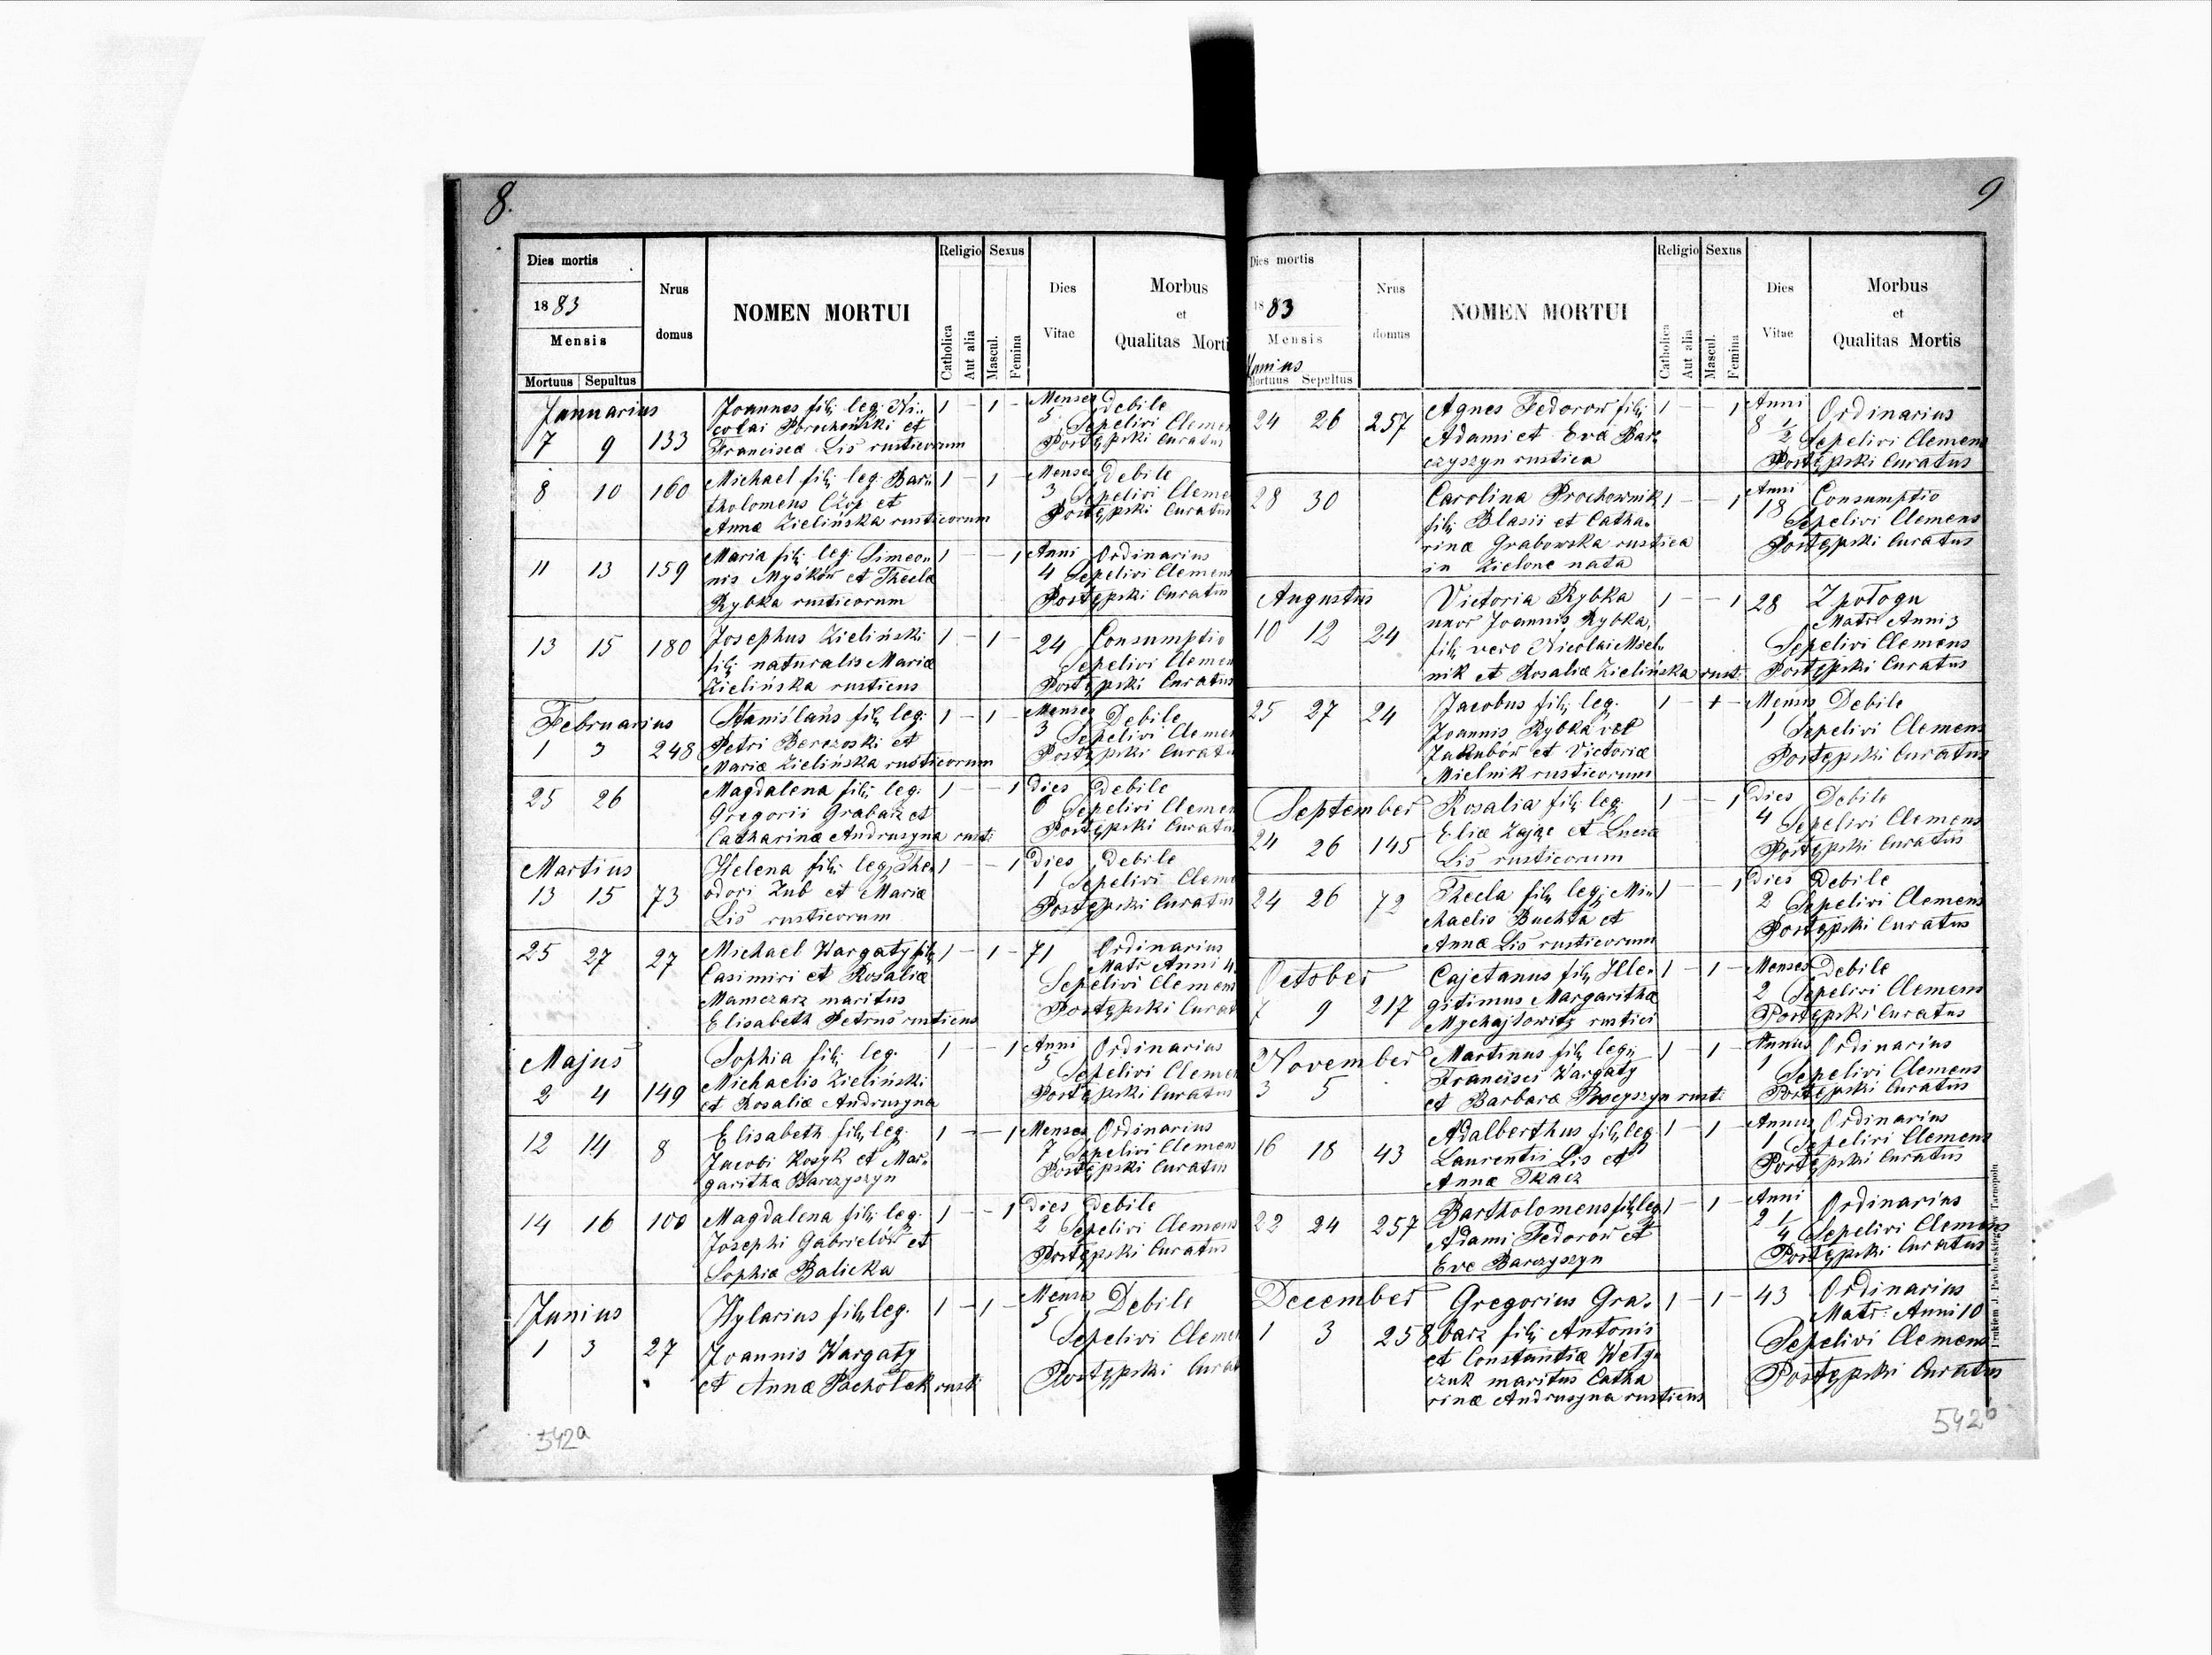 8.
Dies mortis
1883
Mensis
Mortuus Sepultus
Nrus domus
NOMEN MORTUI
Religio
Catholica
Aut alia
Sexus
Mascul.
Femina
Dies Vitae
Morbus
et
Qualitas Morti
Januarius
7 9 133
Joannes fili leg. Ni-
colai Porochoński et
Franciscæ Lis rusticorum
1 - 1 -
Menses
5
Debile
Sepelivi Clemen
Postępski Curatus
8 10 160
Michael fili leg. Bar-
tholomeus Czop et
Annæ Zielińska rusticorum
1 - 1 -
Menses
3
Debile
Sepelivi Cleme
Postępski Curatus
11 13 159
Maria fili leg. Simeo-
nis Myśków et Theclæ
Rybka rusticorum
1 - - 1
Anni
4
Ordinarius
Sepelivi Clemens
Postępski Curatus
13 15 180
Josephus Zieliński
fili naturalis Mariæ
Zielińska rusticus
1 - 1 -
24
Consumptio
Sepelivi Clemen
Postępski Curatus
Februarius
1 3 248
Stanislaus fili leg.
Petri Berezoski et
Mariæ Zielińska rusticorum
1 - 1 -
Menses
3
Debile
Sepelivi Clemen
Postępski Curatu
25 26
Magdalena fili leg.
Gregorii Grabarz et
Catharinæ Andrusyna rusti
1 - - 1
Dies
6
Debile
Sepelivi Clemen
Postępski Curatus
Martius
13 15 73
Helena fili leg. The-
odori Zub et Mariæ
Lis rusticorum
1 - - 1
Dies
1
Debile
Sepelivi Cleme
Postępski Curatus
25 27 27
Michael Wargaty fili
Casimiri et Rosaliæ
Mamczarz maritus
Elisabeth Petrus rusticus
1 - 1 -
71
Ordinarius
Matr Anni 4
Sepelivi Clemens
Postępski Curat
Majus
2 4 149
Sophia fili leg.
Michaelis Zieliński
et Rosaliæ Andrusyna
1 - - 1
Anni
5
Ordinarius
Sepelivi Clemen
Postępski Curatus
12 14 8
Elisabeth fili leg.
Jacobi Kosyk et Mar-
garithæ Barczyszyn
1 - - 1
Menses
7
Ordinarius
Sepelivi Clemen
Postępski Curatus
14 16 100
Magdalena fili leg.
Josephi Gabrielów et
Sophiæ Balicka
1 - - 1
Dies
2
Debile
Sepelivi Clemens
Postępski Curatus
Junius
1 3 27
Hylarius fili leg.
Joannis Wargaty
et Annæ Pachołek rusti
1 - 1 -
Menses
5
Debile
Sepelivi Cleme
Postępski Curat
542a
9
Dies mortis
1883
Mensis
Junius
Mortuus Sepultus
Nrus domus
NOMEN MORTUI
Religio
Catholica
Aut alia
Sexus
Mascul.
Femina
Dies Vitae
Morbus
et
Qualitas Mortis
24 26 257
Agnes Fedorow fili
Adami et Evæ Bar-
czyszyn rustica
1 - - 1
Anni
8 1/2
Ordinarius
Sepelivi Clemens
Postępski Curatus
28 30
Carolina Prochownik
fili Blasii et Catha-
rinæ Grabowska rustica
in Zielone nata
1 - - 1
Anni
18
Consumptio
Sepelivi Clemens
Postępski Curatus
Augustus
10 12 24
Victoria Rybka
uxor Joannis Rybka,
fili vero Nicolai Miel-
nik et Rosaliæ Zielińska rust.
1 - - 1
28
Z połogu
Matr Anni 3
Sepelivi Clemens
Postępski Curatus
25 27 24
Jacobus fili leg.
Joannis Rybka vel
Jakubów et Victoriæ
Mielnik rusticorum
1 - 1 -
Mensis
1
Debile
Sepelivi Clemens
Postępski Curatus
September
24 26 145
Rosalia fili leg.
Eliæ Zając et Luciæ
Lis rusticorum
1 - - 1
Dies
4
Debile
Sepelivi Clemens
Postępski Curatus
24 26 72
Thecla fili leg. Mi-
chaelis Buchta et
Annæ Lis rusticorum
1 - - 1
Dies
2
Debile
Sepelivi Clemens
Postępski Curatus
October
7 9 217
Cajetanus fili Ille-
gitimus Margarithæ
Mychajłowitz rustici
1 - 1 -
Menses
2
Debile
Sepelivi Clemens
Postępski Curatus
November
3 5
Martinus fili leg.
Francisci Wargaty
et Barbaræ rusti
1 - 1 -
Annus
1
Ordinarius
Sepelivi Clemens
Postępski Curatus
16 18 43
Adalberthus fili leg.
Laurentii Lis et
Annæ Tkacz
1 - 1
Annus
1
Ordinarius
Sepelivi Clemens
Postępski Curatus
22 24 257
Bartholomeus fili leg.
Adami Fedorow et
Eve Barczyszyn
1 - 1
Anni
2 1/4
Ordinarius
Sepelivi Clemens
Postępski Curatus
December
1 3 258
Gregorius Gra-
barz fili Antonis
et Constantiæ Weły-
czuk maritus Catha
rinæ Andrusyna rusticus
1 - 1 -
43
Ordinarius
Matr: Anni 10
Sepelivi Clemens
Postępski Curatus
Drukiem J. Pawłowskiego w Tarnopolu
542b